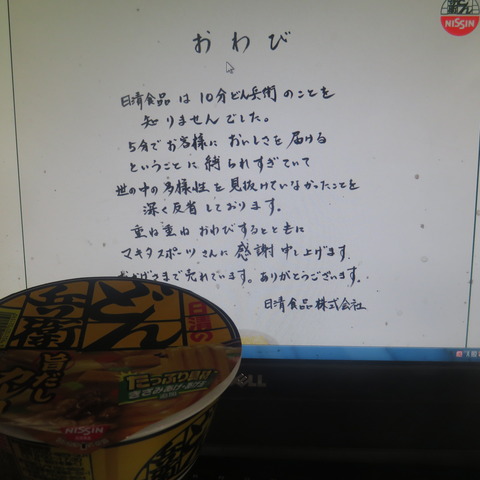 NISSIN
おわび
日清食品は10分どん兵衛のことを
知りませんでした。
5分でお客様においしさを届ける
ということに縛られすぎていて
世の中の多様性を見抜けていなかったことを
深く反省しております。
重ね重ねおわびするとともに
マキタスポーツさんに感謝申し上げます。
売れています。ありがとうございます。
日清食品株式会社
DELL
日清の
どん
兵衛
旨だし
たっぷり具材
きざみあげ・お肉
NISSIN